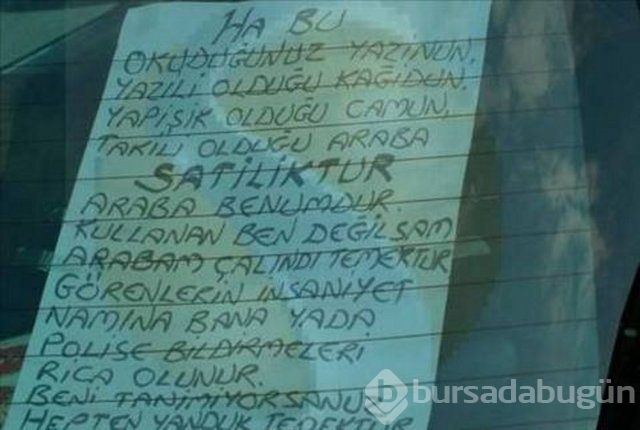 HA BU
OKUDUĞUNUZ YAZİNUN,
YAZILI OLDUĞU KAĞIDUN,
YAPIŞIK OLDUĞU CAMUN,
TAKILI OLDUĞU ARABA
SATILIKTUR
ARABA BENUMDUR.
KULLANAN BEN DEĞİLSAM
ARABAM ÇALINDI TEMEKTUR
GÖRENLERİN İNSANİYET
NAMINA BANA YADA
POLİSE BİLDİRMELERİ
RİCA OLUNUR.
BENİ TANIMIYORSANUZ
HEPTEN YANDUK TEMEKTUR
bursadabugün